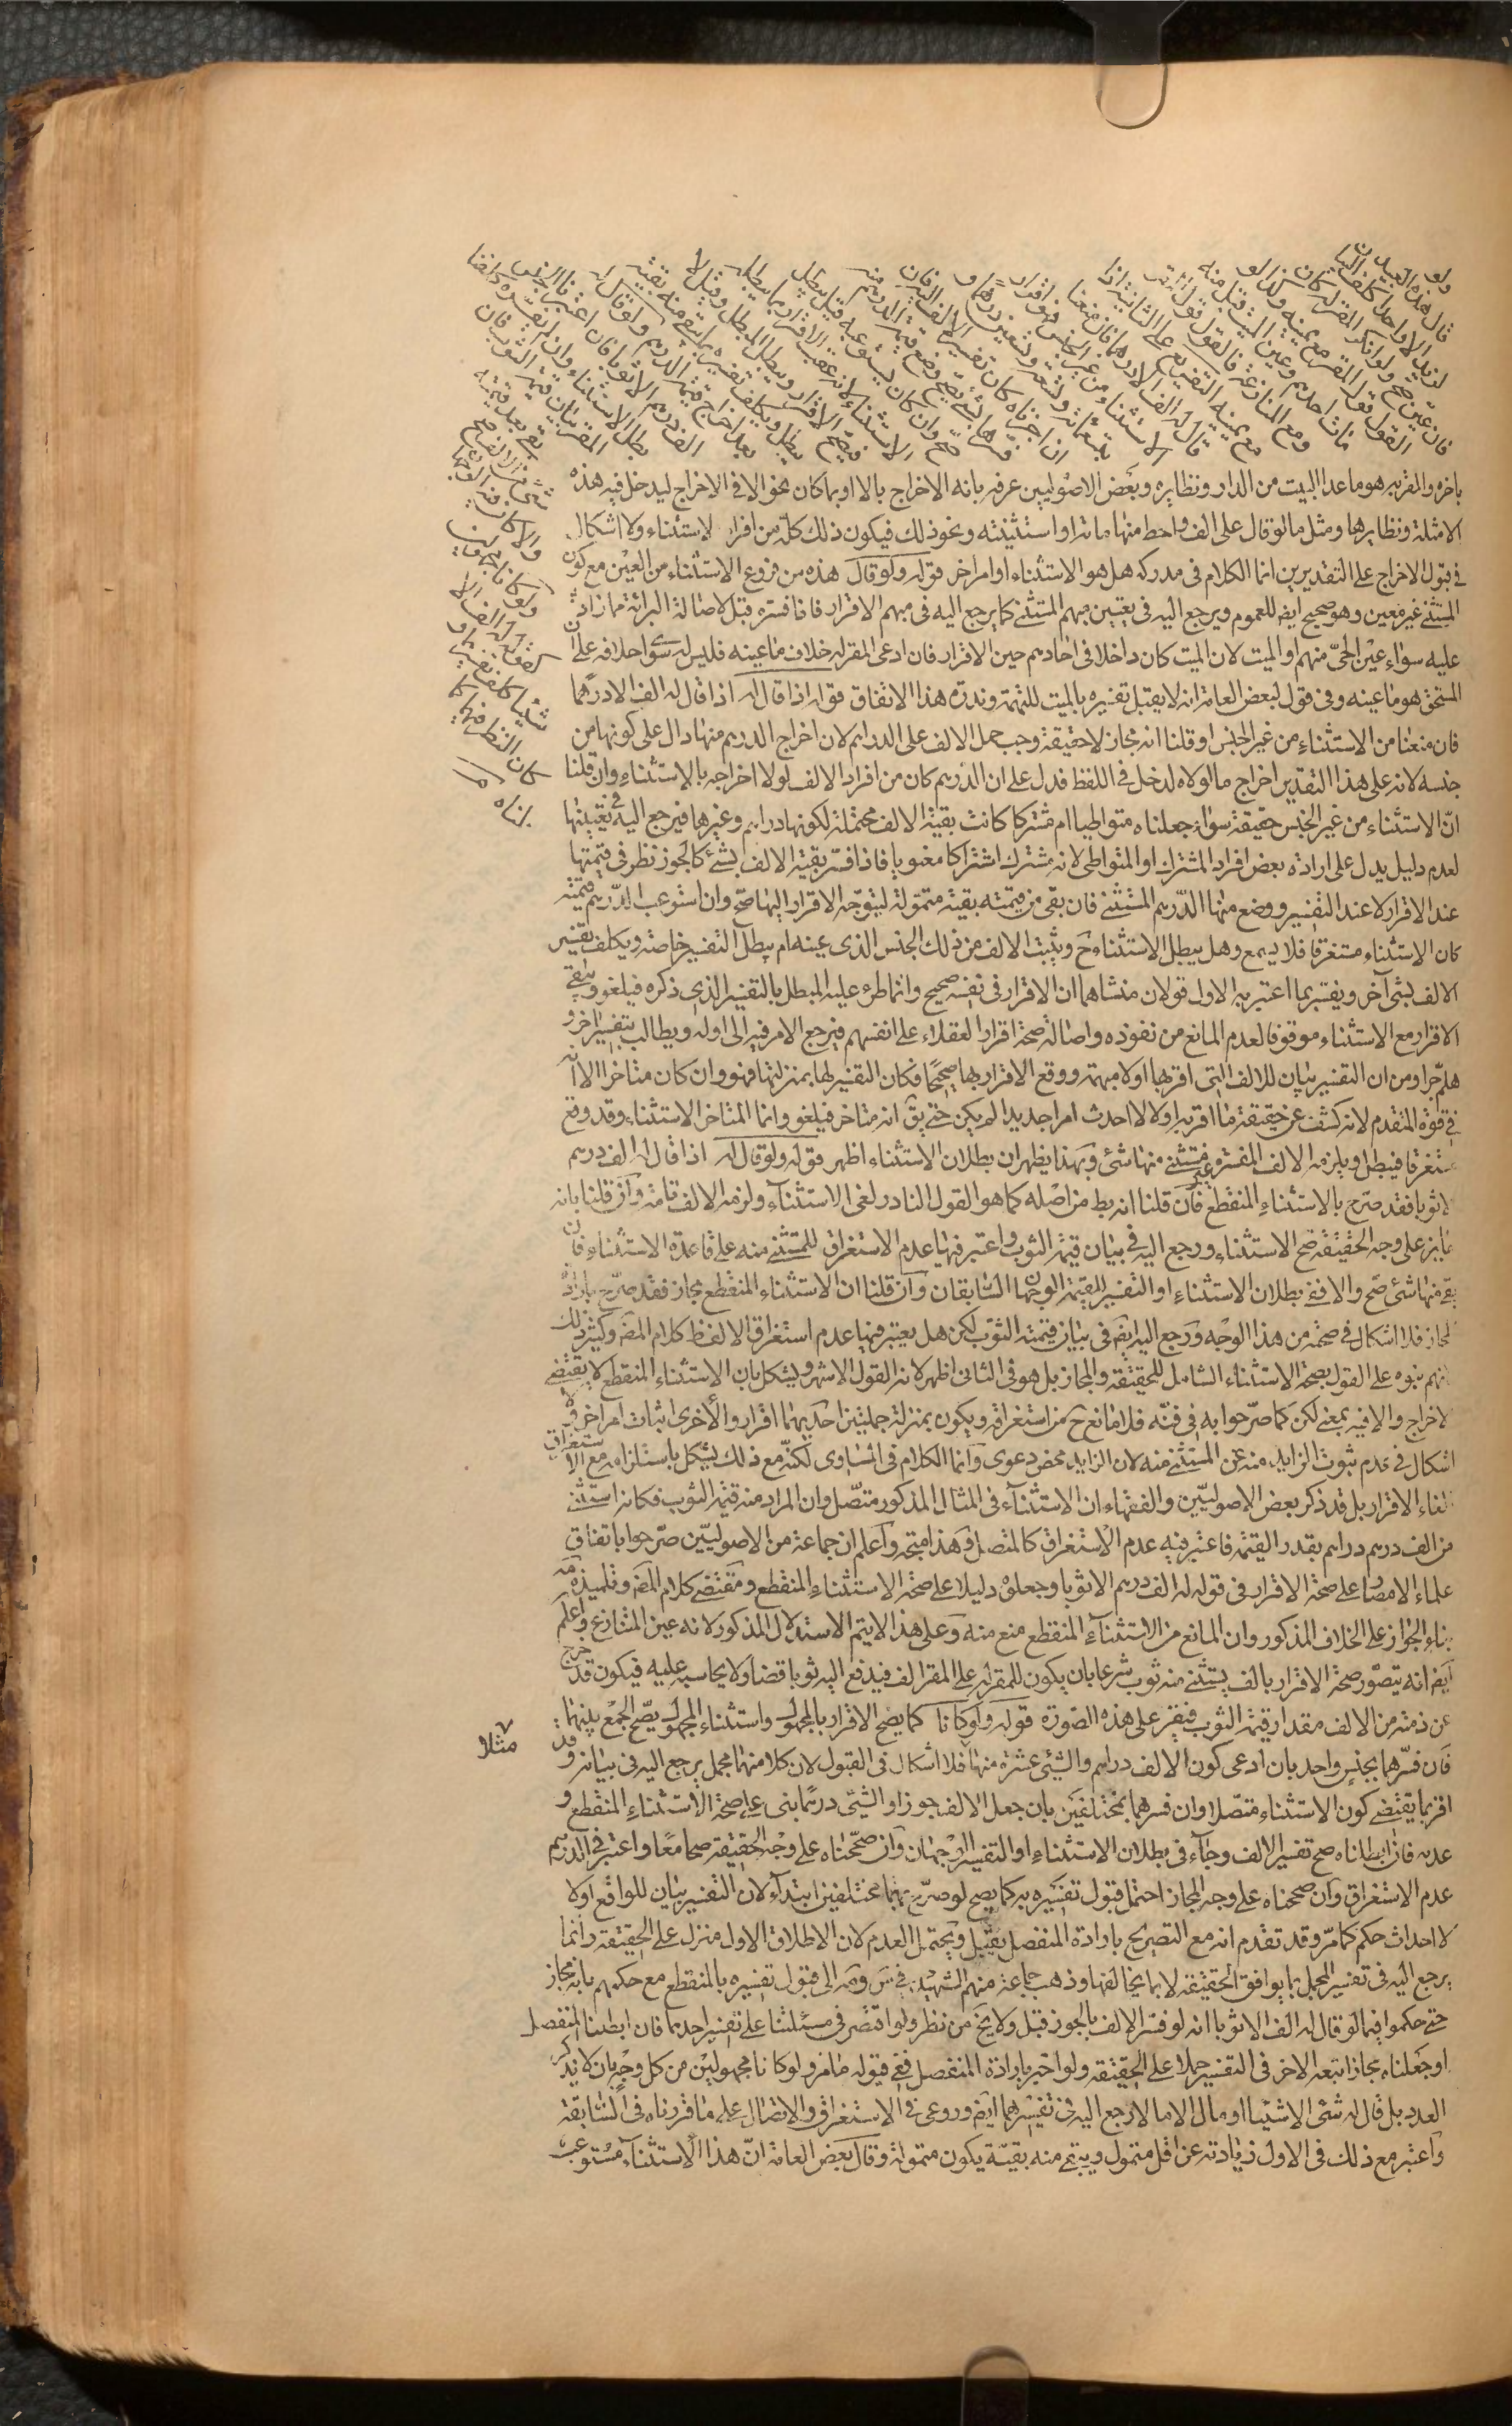 ولو
قال هذه العبيد
لزيد الا واحدا كلف البيان
فان عين صح ولو انكر المقر له كان
القول قول المقر مع يمينه وكذا لو
مات احدهم وعين الميت قبل منه
ومع المنازعة فالقول قول المقر
مع يمينه التفريع على الثانية اذا
قال له الف الا درهما فان منعنا
الاستثناء من غير الجنس فهو اقرار
بتسعمائة وتسعة وتسعين درهما و
ان اجزناه كان تفسير الالف اليه فان
فسرها بشئ يصح وضع قيمة الدرهم منه
صح وان كان يستوعبه قيل يبطل
الاستثناء لانه عقب الاقرار بما يبطله
فيصح الاقرار ويبطل المبطل وقيل لا
يبطل ويكلف تفسيره بما يبقى منه بقية
بعد اخراج قيمة الدرهم ولو قال له
الف درهم الا ثوبا فان اعتبرنا الجنس
بطل الاستثناء وان لم نعتبره كلفنا
المقر بيان قيمة الثوب فان
بقى بعد قيمته
شئ من الالف صح
والا كان فيه الوجهان
ولو كانا مجهولين
كقوله له الف الا
شيئا كلف تفسيرهما و
كان النظر فيهما كما
قلناه
باخره والمقر به هو ما عدا البيت من الدار ونظايره وبعض الاصوليين عرفه بانه الاخراج بالا او بما كان نحو الا في الاخراج ليدخل فيه هذه
الامثلة ونظايرها ومثل ما لو قال على الف واحط منها مائة او استثنيته ونحو ذلك فيكون ذلك كله من افراد الاستثناء ولا اشكال
في قبول الاخراج على التقديرين انما الكلام في مدركه هل هو الاستثناء او امر اخر قوله ولو قال هذه من فروع الاستثناء من العين مع كون
المستثنى غير معين وهو صحيح ايضا للعموم ويرجع اليه في تعيين مبهم المستثنى كما يرجع اليه في مبهم الاقرار فاذا فسره قبل لاصالة البرائة مما زاد
عليه سواء عين الحى منهم او الميت لان الميت كان داخلا في احادهم حين الاقرار فان ادعى المقر له خلاف ما عينه فليس له سوى احلافه على ان
المستحق هو ما عينه وفي قول لبعض العامة انه لا يقبل تفسيره بالميت للتهمة وندرة هذا الاتفاق قوله اذا قال له اذا قال له الف الا درهما
فان منعنا من الاستثناء من غير الجنس او قلنا انه مجاز لا حقيقة وجب حمل الالف على الدراهم لان اخراج الدرهم منها دال على كونها من
جنسه لانه على هذا التقدير اخراج ما لولاه لدخل في اللفظ فدل على ان الدرهم كان من افراد الالف لولا اخراجه بالاستثناء وان قلنا
ان الاستثناء من غير الجنس حقيقة سواء جعلناه متواطيا ام مشتركا كانت بقية الالف محتملة لكونها دراهم وغيرها فيرجع اليه في تعيينها
لعدم دليل يدل على ارادة بعض افراد المشترك او المتواطى لانه مشترك اشتراكا معنويا فاذا فسر بقية الالف بشئ كالجوز نظر في قيمتها
عند الاقرار لا عند التفسير ووضع منها الدرهم المستثنى فان بقى من قيمته بقية متمولة ليتوجه الاقرار اليها صح وان استوعب الدرهم قيمته
كان الاستثناء مستغرقا فلا يسمع وهل يبطل الاستثناء ح ويثبت الالف من ذلك الجنس الذى عينه ام يبطل التفسير خاصة ويكلف تفسير
الالف بشئ آخر ويفسر بما اعتبر به الاول قولان منشاهما ان الاقرار في نفسه صحيح وانما طرء عليه المبطل بالتفسير الذى ذكره فيلغو ويبقى
الاقرار مع الاستثناء موقوفا لعدم المانع من نفوذه واصالة صحة اقرار العقلاء على انفسهم فيرجع الامر فيه الى اوله ويطالب بتفسير اخر و
هلم جرا ومن ان التفسير بيان للالف التى اقر بها اولا مبهمة ووقع الاقرار بها صحيحا فكان التفسير لها بمنزلتها فهو وان كان متاخرا الا انه
في قوة المتقدم لانه كشف عن حقيقة ما اقر به اولا لا احدث امرا جديدا لم يكن حتى يق انه متاخر فيلغو وانما المتاخر الاستثناء وقد وقع
مستغرقا فيبطل ويلزمه الالف المفسرة غير مستثنى منها شئ وبهذا يظهر ان بطلان الاستثناء اظهر قوله ولو قال له اذا قال له الف درهم
الا ثوبا فقد صرح بالاستثناء المنقطع فان قلنا انه بط من اصله كما هو القول النادر لغى الاستثناء ولزمه الالف تامة وان قلنا بانه
جايز على وجه الحقيقة صح الاستثناء ورجع اليه في بيان قيمة الثوب واعتبر فيها عدم الاستغراق للمستثنى منه على قاعدة الاستثناء فان
بقى منها شئ صح والا ففى بطلان الاستثناء او التفسير للقيمة الوجهان السابقان وان قلنا ان الاستثناء المنقطع مجاز فقد صرح بارادة
المجاز فلا اشكال في صحته من هذا الوجه ورجع اليه ايضا في بيان قيمة الثوب لكن هل يعتبر فيها عدم استغراق الالف ظ كلام المص وكثير ذلك
لانهم بنوه على القول بصحة الاستثناء الشامل للحقيقة والمجاز بل هو في الثانى اظهر لانه القول الاشهر ويشكل بان الاستثناء المنقطع لا يقتضى
الاخراج والا فيه بمعنى لكن كما صرحوا به في فنه فلا مانع ح من استغراقه ويكون بمنزلة جملتين احديهما اقرار والاخرى اثبات امر اخر ولا
اشكال في عدم ثبوت الزايد منه عن المستثنى منه لان الزايد محض دعوى وانما الكلام في المساوى لكنه مع ذلك يشكل باستلزامه مع الاستغراق
الغاء الاقرار بل قد ذكر بعض الاصوليين والفقهاء ان الاستثناء في المثال المذكور متصل وان المراد منه قيمة الثوب فكانه استثنى
من الف درهم دراهم بقدر القيمة فاعتبر فيه عدم الاستغراق كالمتصل وهذا متجه واعلم ان جماعة من الاصوليين صرحوا باتفاق
علماء الامصار على صحة الاقرار في قوله له الف درهم الا ثوبا وجعلوه دليلا على صحة الاستثناء المنقطع ومقتضى كلام المص وتلميذه مه
بناء الجواز على الخلاف المذكور وان المانع من الاستثناء المنقطع منع منه وعلى هذا لا يتم الاستدلال المذكور لانه عين المتنازع واعلم
ايضا انه يتصور صحة الاقرار بالف يستثنى منه ثوب شرعا بان يكون للمقر له على المقر الف فيدفع اليه ثوبا قضاء ولا يحاسبه عليه فيكون قد خرج
عن ذمته من الالف مقدار قيمة الثوب فيقر على هذه الصورة قوله ولو كانا كما يصح الاقرار بالمجهول واستثناء المجهول يصح الجمع بينهما
مثلا
فان فسرهما بجنس واحد بان ادعى كون الالف دراهم والشئ عشرة منها فلا اشكال في القبول لان كلا منهما مجمل يرجع اليه في بيانه وقد
اقر بما يقتضى كون الاستثناء متصلا وان فسرهما بمختلفين بان جعل الالف جوزا والشئ درهما بنى على صحة الاستثناء المنقطع و
عدمه فان ابطلناه صح تفسير الالف وجاء في بطلان الاستثناء او التفسير الوجهان وان صححناه على وجه الحقيقة صحا معا واعتبر في الدرهم
عدم الاستغراق وان صححناه على وجه المجاز احتمل قبول تفسيره به كما يصح لو صرح بهما مختلفين ابتداء لان التفسير بيان للواقع اولا
لا احداث حكم كما مر وقد تقدم انه مع التصريح بارادة المنفصل يقبل ويحتمل العدم لان الاطلاق الاول منزل على الحقيقة وانما
يرجع اليه في تفسير المجمل بما يوافق الحقيقة لا بما يخالفها وذهب جماعة منهم الشهيد في س ومه الى قبول تفسيره بالمنقطع مع حكمهم بانه مجاز
حتى حكموا فيما لو قال له الف الا ثوبا انه لو فسر الالف بالجوز قبل ولا يخ من نظر ولو اقتصر في مسئلتنا على تفسير احدهما فان ابطلنا المنفصل
او جعلناه مجازا اتبعه الاخر في التفسير حملا على الحقيقة ولو اخبر بارادة المنفصل ففى قبوله ما مر ولو كانا مجهولين من كل وجه بان لا يذكر
العدد بل قال له شئ الا شيئا او مال الا مالا رجع اليه في تفسيرهما ايضا وروعى في الاستغراق والاتصال على ما قررناه في السابقة
واعتبر مع ذلك في الاول زيادته عن اقل متمول ويبقى منه بقية يكون متمولة وقال بعض العامة ان هذا الاستثناء مستوعب